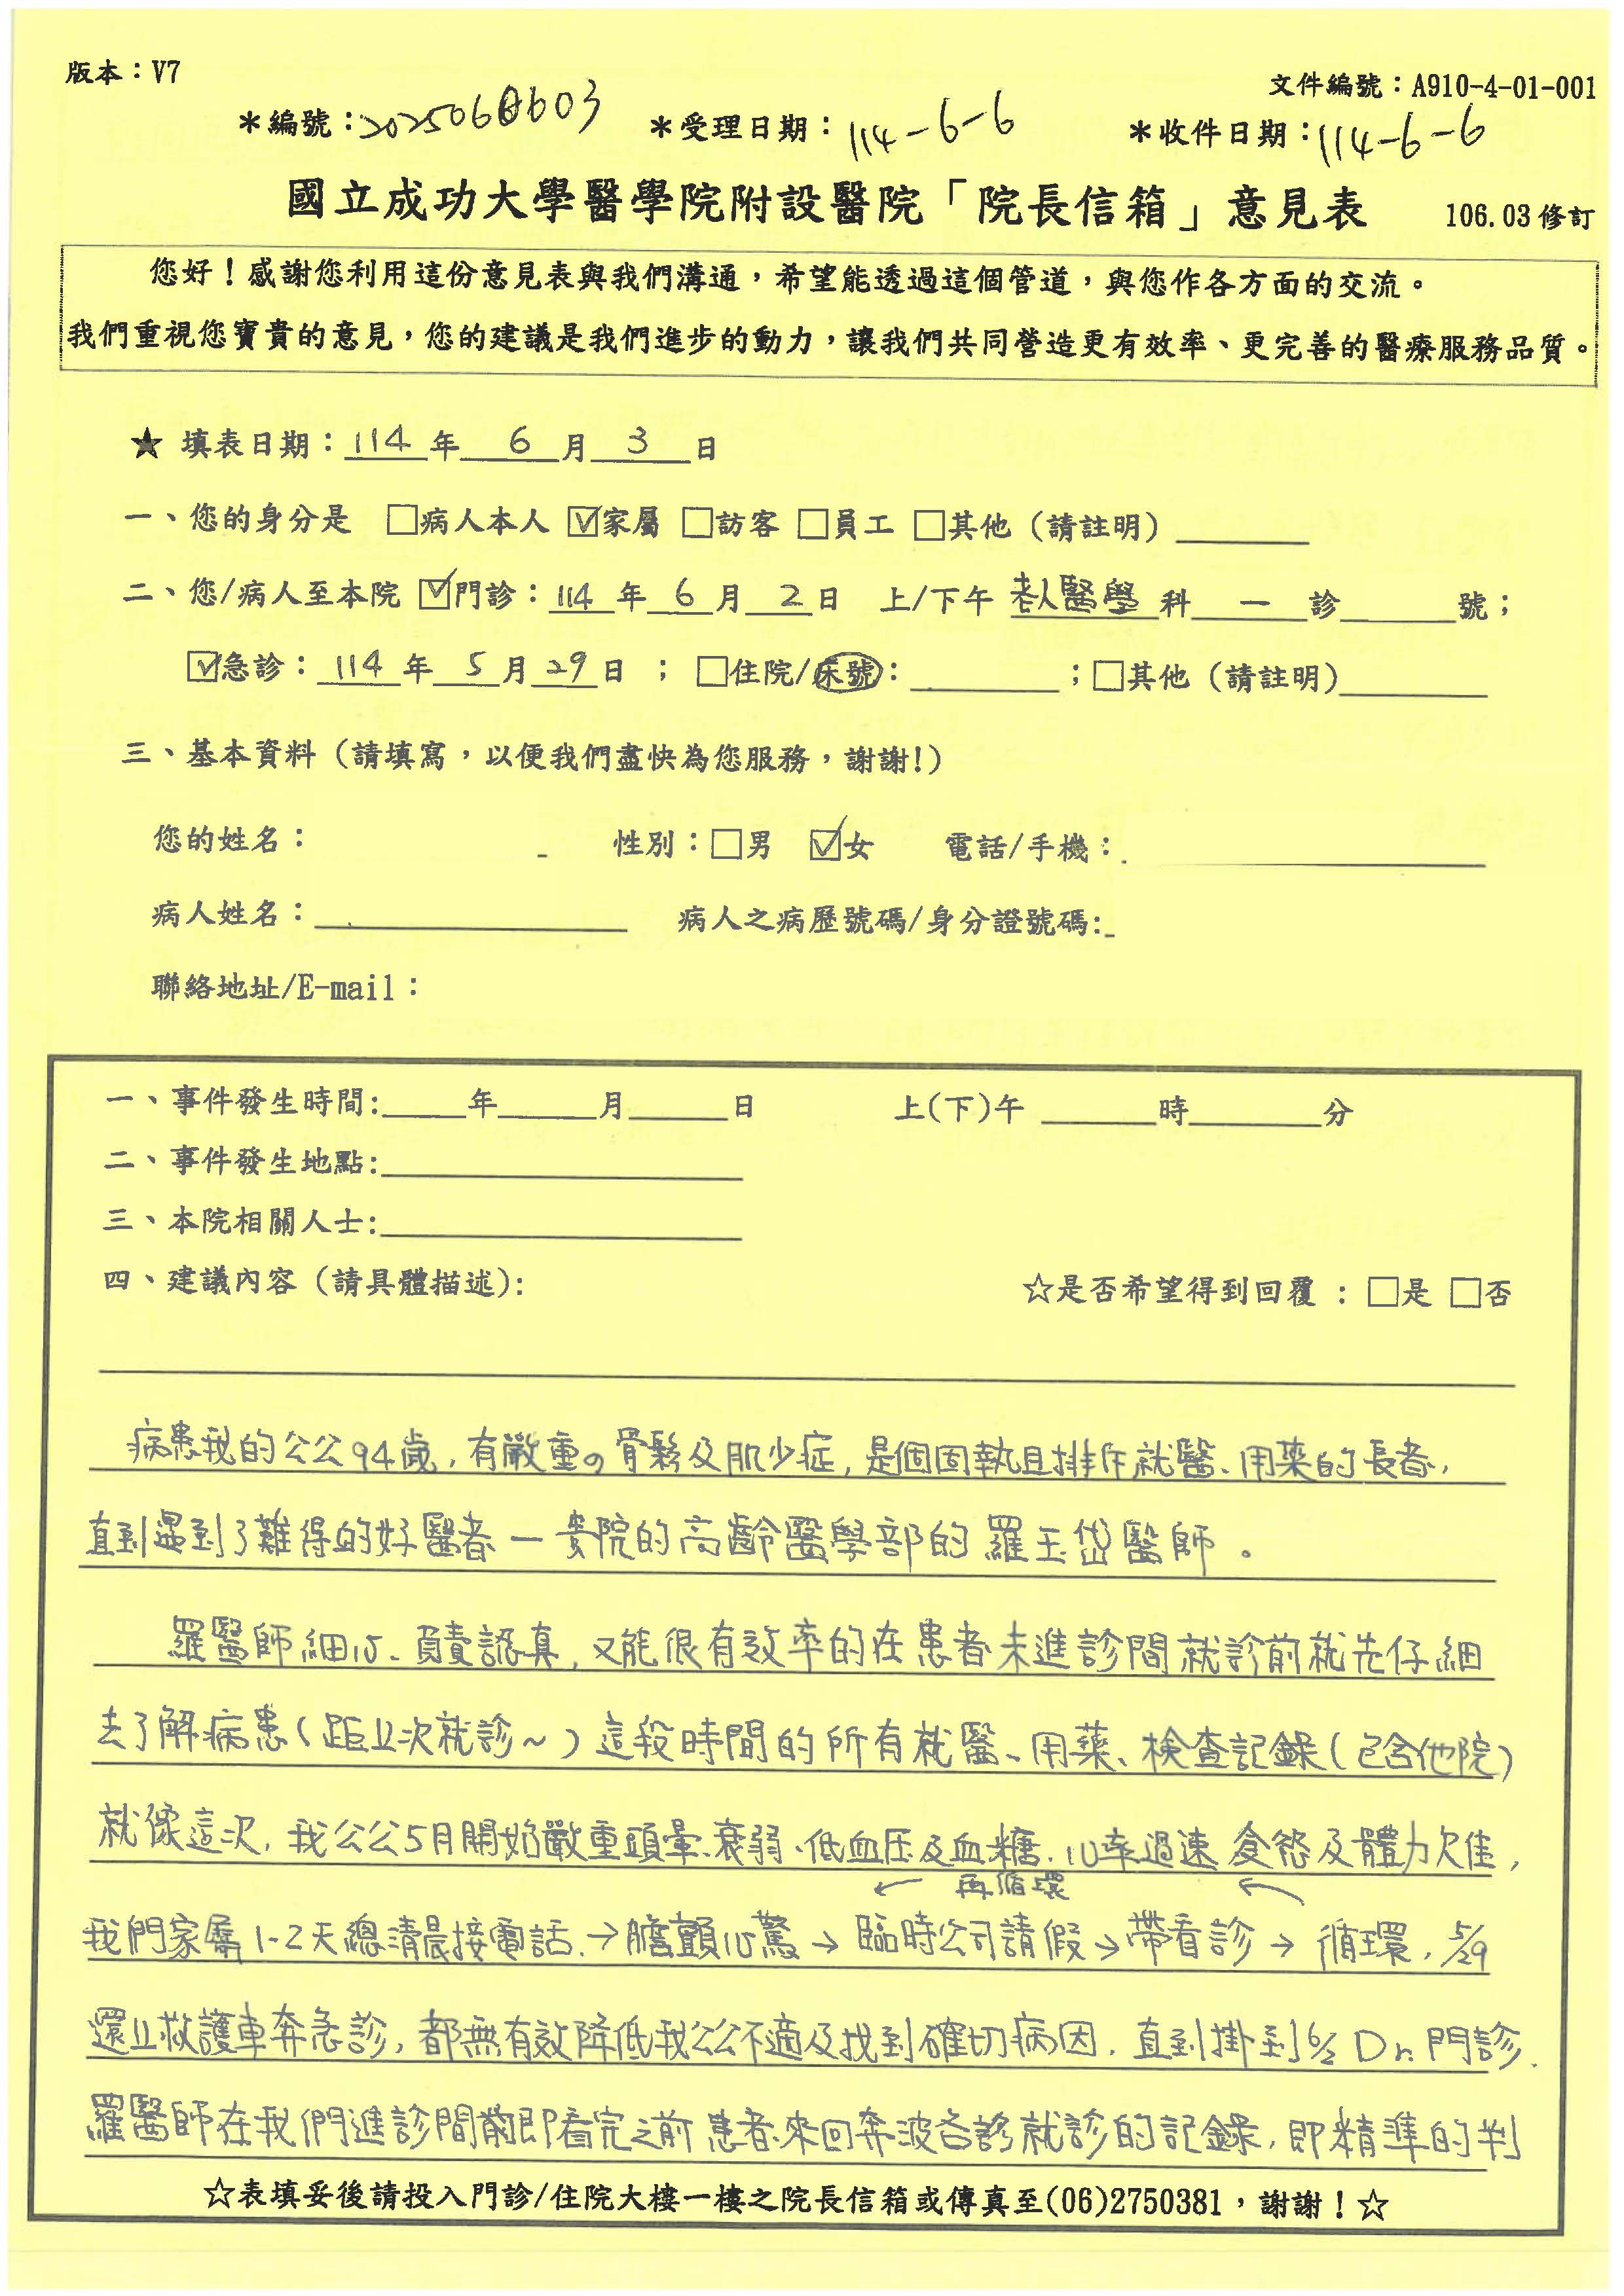 版本：V7
文件編號：A910-4-01-001
＊編號：2025060603 ＊受理日期：114-6-6 ＊收件日期：114-6-6
國立成功大學醫學院附設醫院「院長信箱」意見表 106.03修訂
您好！感謝您利用這份意見表與我們溝通，希望能透過這個管道，與您作各方面的交流。
我們重視您寶貴的意見，您的建議是我們進步的動力，讓我們共同營造更有效率、更完善的醫療服務品質。
★ 填表日期：114年 6月 3日
一、您的身分是 □病人本人 ☑家屬 □訪客 □員工 □其他（請註明）
二、您/病人至本院 ☑門診：114年 6月 2日 上/下午 老人醫學科 一 診 號；
☑急診：114年 5月 29日 ；□住院/床號： ；□其他（請註明）
三、基本資料（請填寫，以便我們盡快為您服務，謝謝!）
您的姓名： 性別：□男 ☑女 電話/手機：
病人姓名： 病人之病歷號碼/身分證號碼:
聯絡地址/E-mail：
一、事件發生時間: 年 月 日 上(下)午 時 分
二、事件發生地點:
三、本院相關人士:
四、建議內容（請具體描述）: ☆是否希望得到回覆 : □是 □否
病患我的公公94歲，有嚴重の骨鬆及肌少症，是個固執且排斥就醫、用藥的長者，
直到遇到了難得的好醫者－貴院的高齡醫學部的羅玉岱醫師。
羅醫師細心、負責認真，又能很有效率的在患者未進診間就診前就先仔細
去了解病患（距上次就診～）這段時間的所有就醫、用藥、檢查記錄（包含他院）
就像這次，我公公5月開始嚴重頭暈、衰弱、低血压及血糖、心率過速 食慾及體力欠佳，
← 再循環 ←
我們家屬1-2天總清晨接電話，→膽顫心驚→臨時公司請假→帶看診→循環，5/29
還上救護車奔急診，都無有效降低我公公不適及找到確切病因，直到掛到6/2 Dr.門診，
羅醫師在我們進診間前即看完之前患者來回奔波各診就診的記錄，即精準的判
☆表填妥後請投入門診/住院大樓一樓之院長信箱或傳真至(06)2750381，謝謝！☆